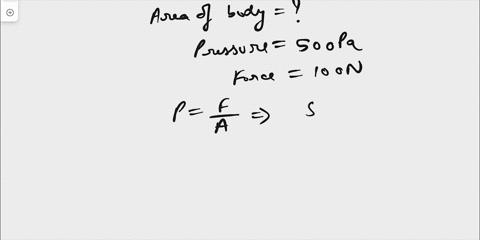 Area of body = ?
Pressure = 500Pa
Force = 100N
P = F/A ⇒ S